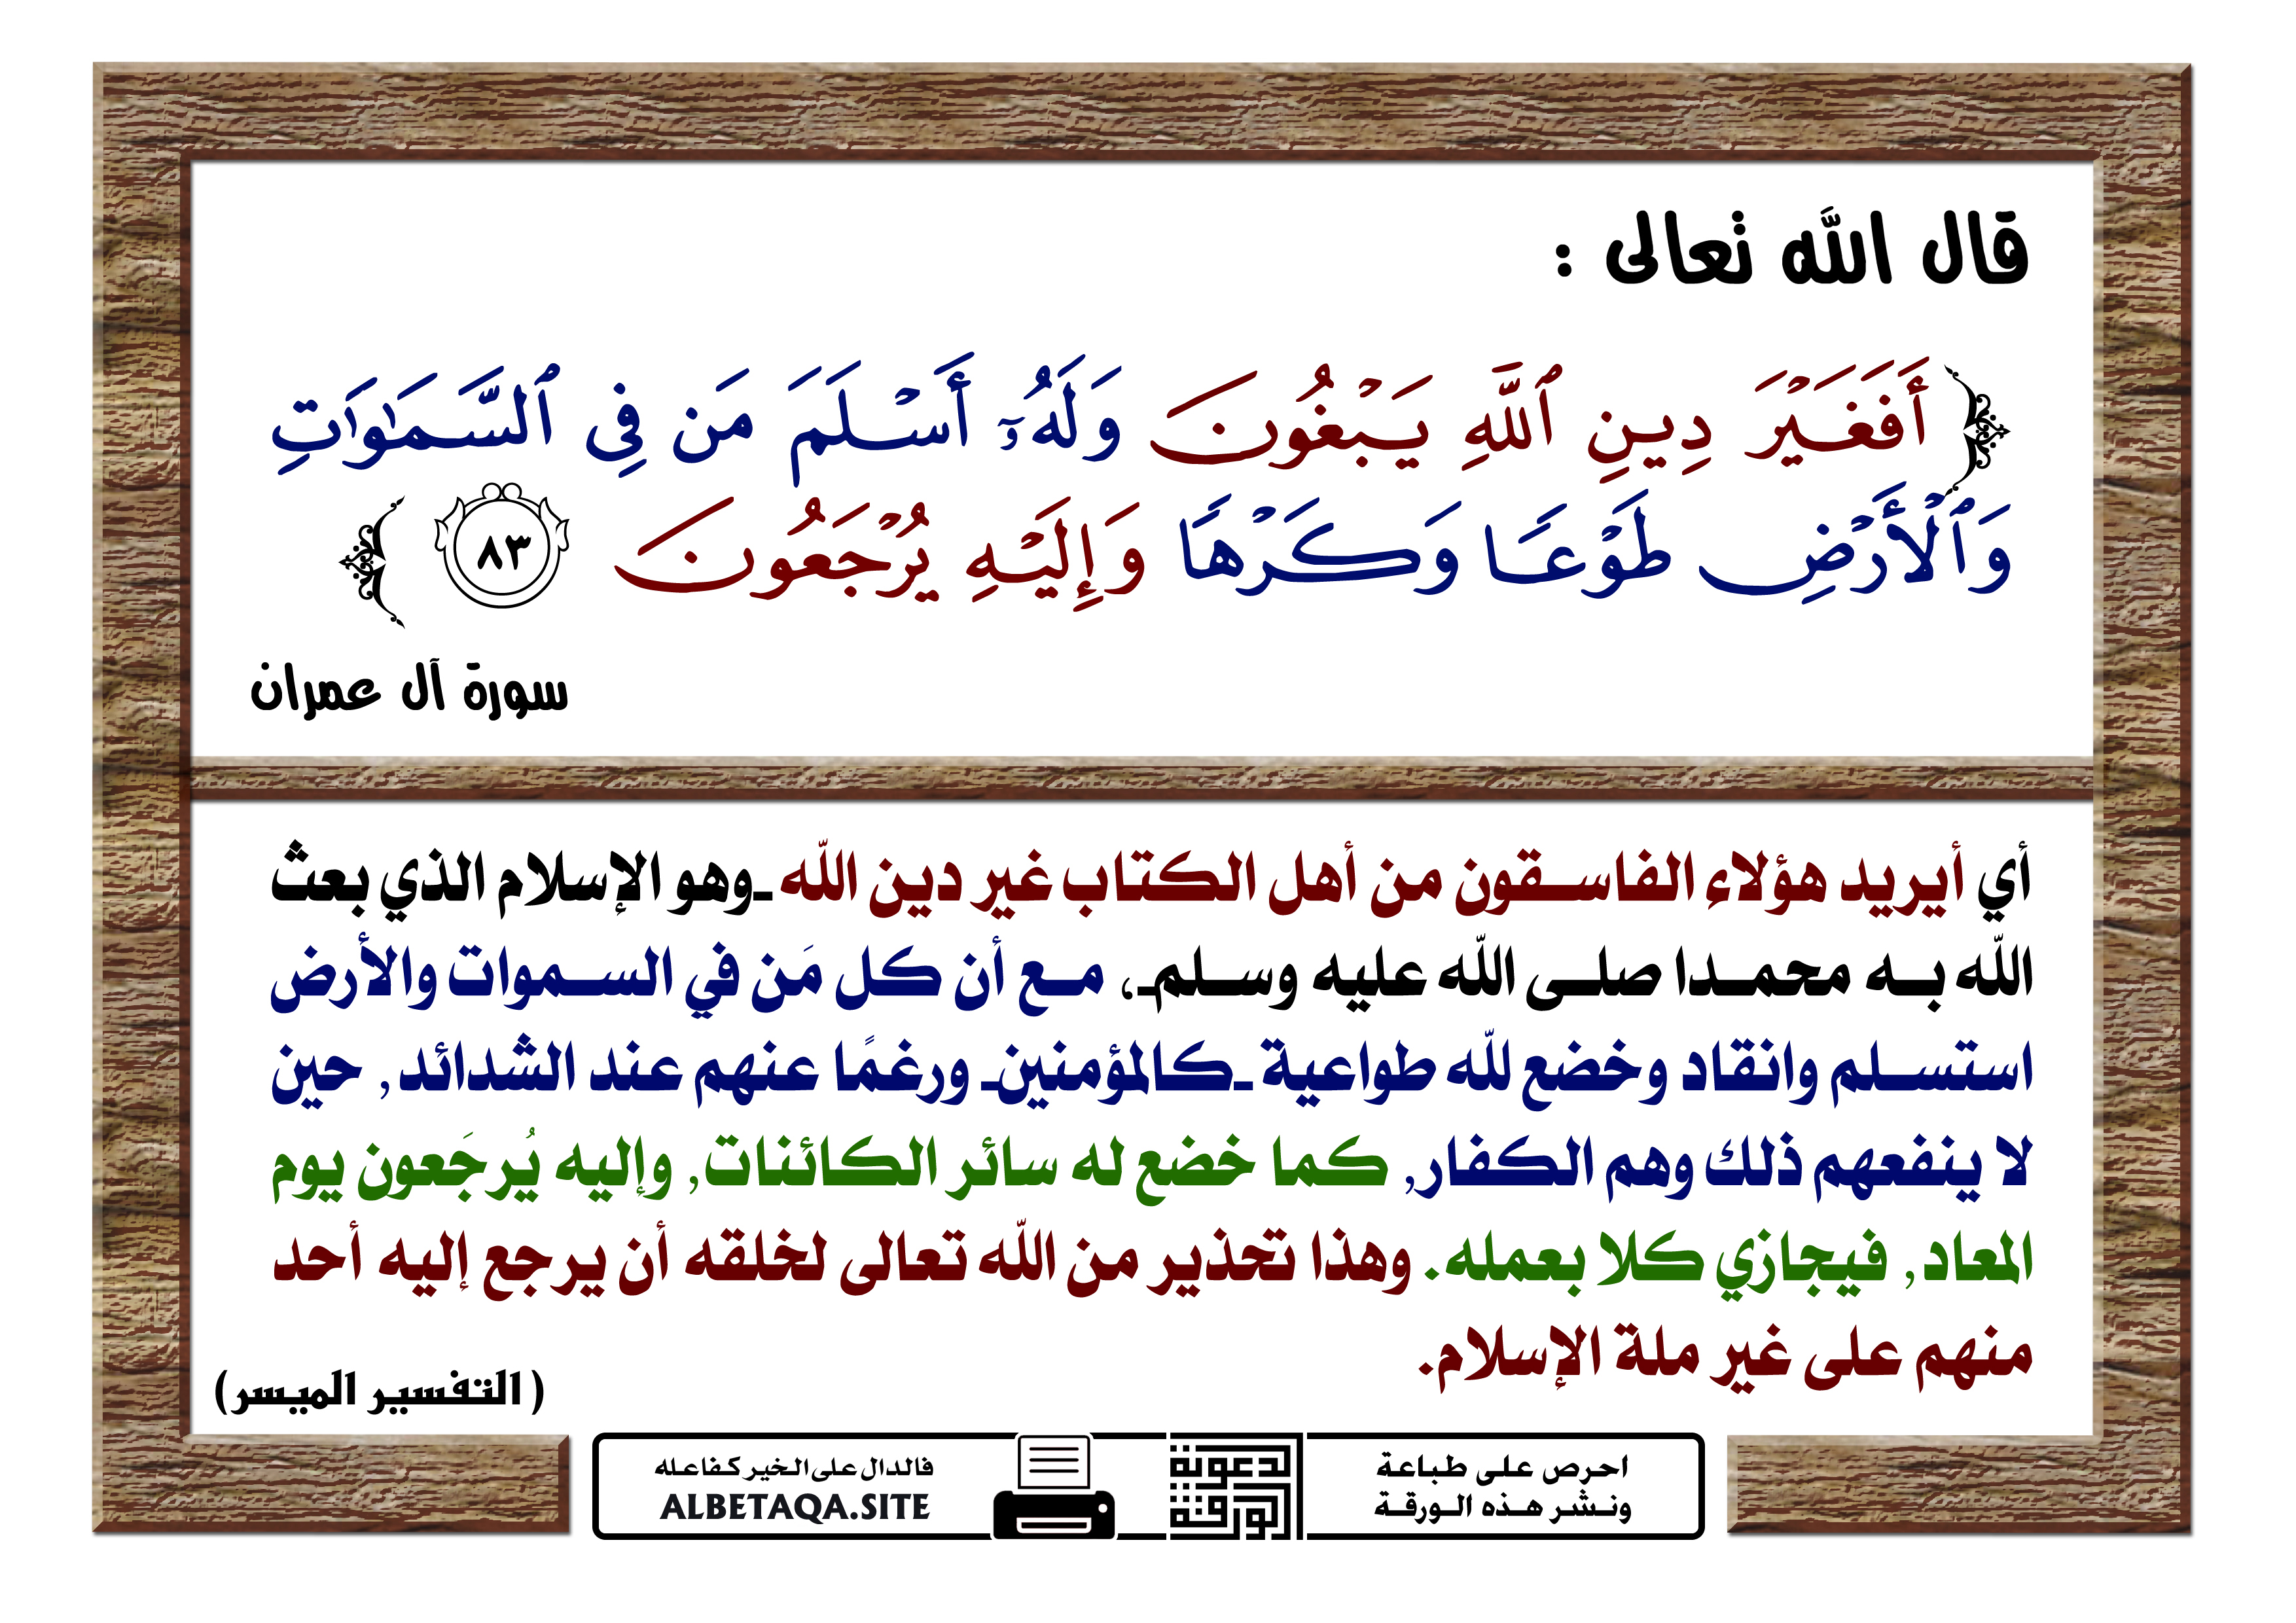 قال الله تعالى :
﴿ أَفَغَيْرَ دِينِ ٱللَّهِ يَبْغُونَ وَلَهُۥٓ أَسْلَمَ مَن فِى ٱلسَّمَٰوَٰتِ
وَٱلْأَرْضِ طَوْعًا وَكَرْهًا وَإِلَيْهِ يُرْجَعُونَ ٨٣ ﴾
سورة آل عمران
أي أيريد هؤلاء الفاسقون من أهل الكتاب غير دين الله -وهو الإسلام الذي بعث
الله به محمدا صلى الله عليه وسلم-، مع أن كل مَن في السموات والأرض
استسلم وانقاد وخضع لله طواعية -كالمؤمنين- ورغمًا عنهم عند الشدائد, حين
لا ينفعهم ذلك وهم الكفار, كما خضع له سائر الكائنات, وإليه يُرجَعون يوم
المعاد, فيجازي كلا بعمله. وهذا تحذير من الله تعالى لخلقه أن يرجع إليه أحد
منهم على غير ملة الإسلام.
( التفسير الميسر)
احرص على طباعة
ونشر هذه الورقة
الدعوية
الورقة
فالدال على الخير كفاعله
ALBETAQA.SITE